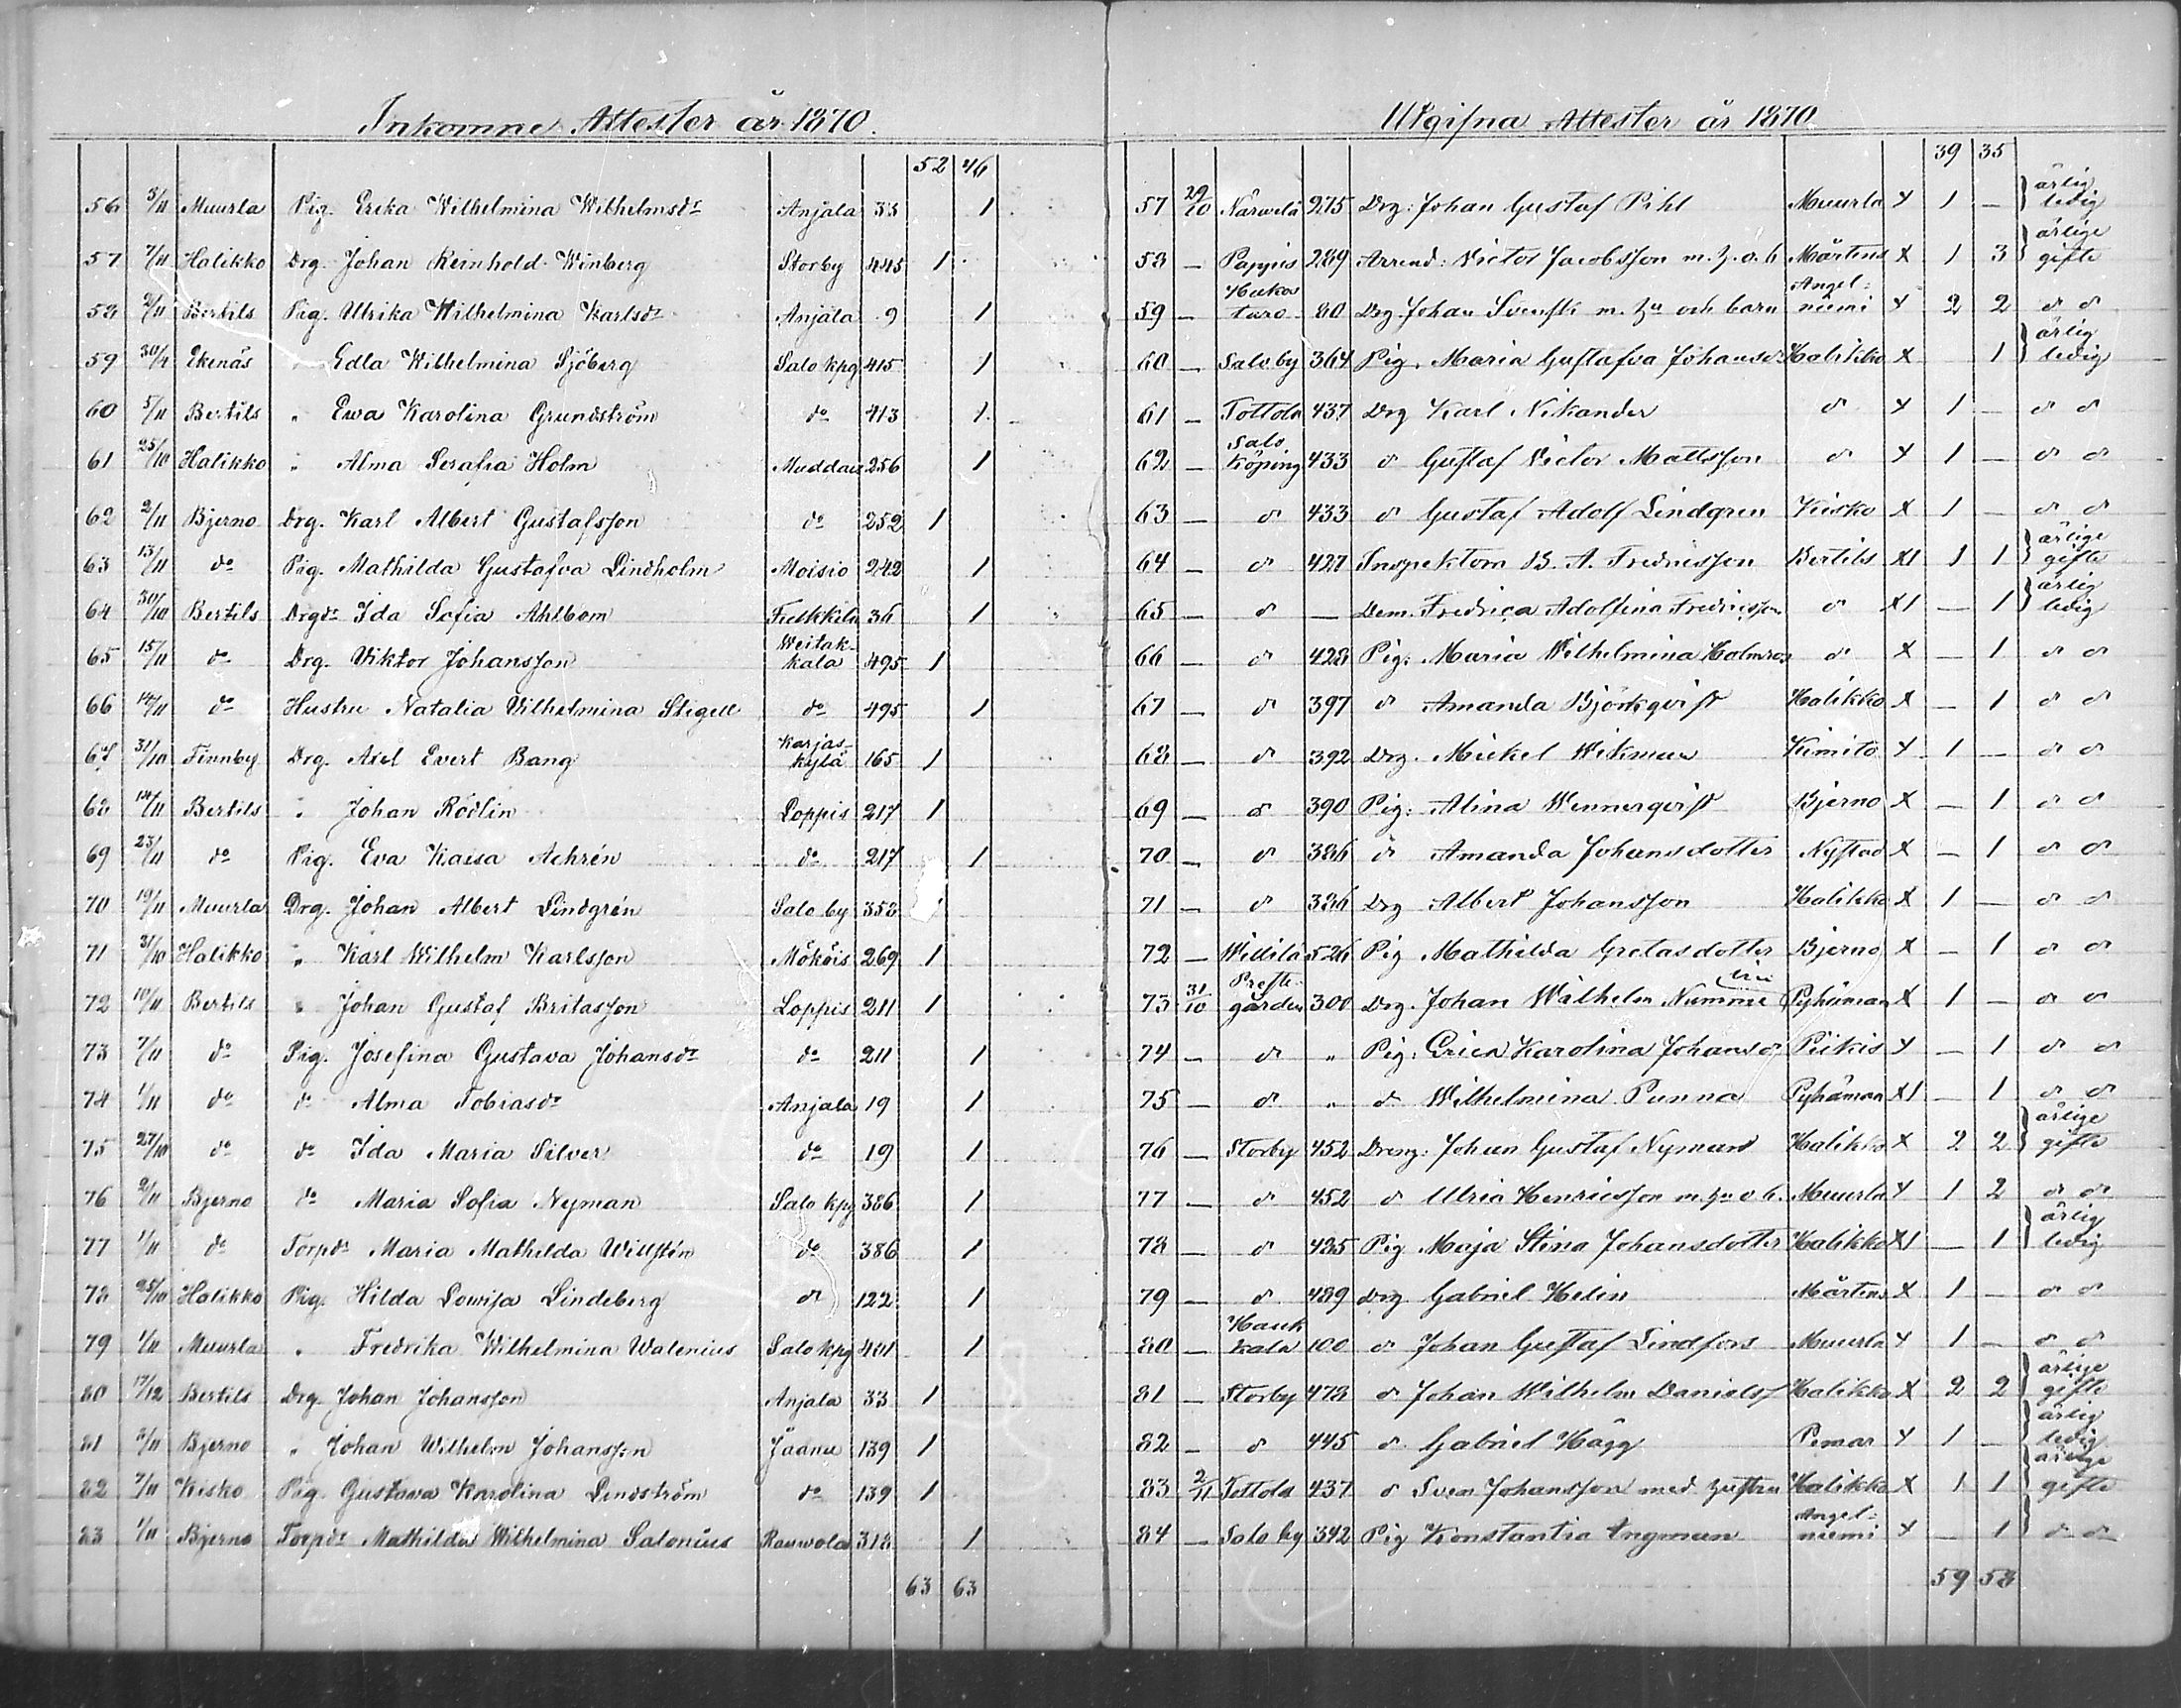 Inkomne Attester år 1870.
52 46
56 3/11 Muurla Pig. Erika Wilhelmina Wilhelmsdr Anjala 33 1
57 7/11 Halikko Drg. Johan Reinhold Winberg Storby 445 1
58 2/11 Bertils Pig. Ulrika Wilhelmina Karlsdr Anjala 9 1
59 30/4 Ekenäs " Edla Wilhelmina Sjöberg Salo kpg 415 1
60 5/11 Bertils " Ewa Karolina Grundström do 413 1
61 25/10 Halikko " Alma Serafia Holm Muddais 256 1
62 2/11 Bjerno Drg. Karl Albert Gustafsson do 252 1
63 13/11 do Pig. Mathilda Gustafva Lindholm Moisio 242 1
64 30/10 Bertils Drgdr Ida Sofia Ahlbom 36 1
65 15/11 do Drg. Viktor Johansson Weitakkala 495 1
66 14/11 do Hustru Natalia Vilhelmina Stigell do 495 1
67 31/10 Finnby Drg. Axel Evert Bang Karjaskylä 165 1
68 14/11 Bertils " Johan Rödlin Loppis 217 1
69 23/11 do Pig. Eva Kaisa Achrén do 217 1
70 19/11 Muurla Drg. Johan Albert Lindgrén Salo by 358
71 31/10 Halikko " Karl Wilhelm Karlsson Mököis 269 1
72 10/11 Bertils " Johan Gustaf Britasson Loppis 211 1
73 7/11 do Pig. Josefina Gustava Johansdr do 211 1
74 1/11 do do Alma Tobiasdr Anjala 19 1
75 27/10 do do Ida Maria Silver do 19 1
76 2/11 Bjerno do Maria Sofia Nyman Salo kpg 386 1
77 1/11 do Torpdr Maria Mathilda Willstén do 386 1
78 25/10 Halikko Pig. Hilda Lowisa Lindeberg do 122 1
79 1/11 Muurla " Fredrika Wilhelmina Walenius Salo kpg 401 1
80 17/12 Bertils Drg. Johan Johansson Anjala 33 1
81 2/11 Bjerno " Johan Wilhelm Johansson Jäanu 139 1
82 7/11 Kisko Pig. Gustawa Karolina Lindström do 139 1
83 1/11 Bjerno Torpdr Mathilda Wilhelmina Salonius Rauwola 318 1
63 63
Utgifna Attester år 1870
39 35
57 29/10 Närwelä 275 Drg: Johan Gustaf Pihl Muurla X 1 — ärlig ledig
58 — Pappis 289 Arrend: Victor Jacobsson m. h. o. b Mårtens X 1 3 ärlige gifte
59 — 80 Drg. Johan Svensk m. hu och barn Angelniemi X 2 2 do do
60 — Salo by 364 Pig. Maria Gustafva Johansdr Halikko X 1 ärlig ledig
61 — Tottola 437 Drg Karl Nikander do X 1 — do do
62 — Salo Köping 433 do Gustaf Victor Mattsson do X 1 — do do
63 — do 433 do Gustaf Adolf Lindgren Kisko X 1 — do do
64 — do 427 Inspektorn B. A. Fredricsson Bertils XI 1 1 ärlige gifte
65 — do — Dem. Fredrica Adolfina Fredricsson do XI — 1 ärlig ledig
66 — do 428 Pig: Maria Wilhelmina Holmros do X — 1 do do
67 — do 397 do Amanda Björkqvist Halikko X — 1 do do
68 — do 392 Drg. Mickel Wikman Kimito X 1 — do do
69 — do 390 Pig: Alina Wennerqvist Bjerno X — 1 do do
70 — do 386 do Amanda Johansdotter Nystad X — 1 do do
71 — do 386 Drg Albert Johansson Halikko X 1 — do do
72 — Willilä 526 Pig Mathilda Gretasdotter Bjerno X — 1 do do
73 31/10 Prestgården 300 Drg. Johan Wilhelm Numme Pyhämaa X 1 — do do
74 — do " Pig: Erica Karolina Johansdr Piikis X — 1 do do
75 — do " do Wilhelmina Punna Pyhämaa XI — 1 do do
76 — Storby 452 Dreng: Johan Gustaf Nyman Halikko X 2 2 ärlige gifte
77 — do 452 do Ulric Henricsson m. hu o b. Muurla X 1 2 do do
78 — do 485 Pig Maja Stina Johansdotter Halikko XI — 1 ärlig ledig
79 — do 489 Drg Gabriel Helin Mårtens X 1 — do do
80 — Haukkala 100 do Johan Gustaf Lindfors Muurla X 1 — do do
81 — Storby 478 do Johan Wilhelm Danielss Halikko X 2 2 ärlige gifte
82 — do 445 do Gabriel Hägg Pemar X 1 — ärlig ledig
83 2/11 Tottola 437 do Sven Johansson med hustru Halikko X 1 1 ärlige gifte
84 — Salo by 342 Pig Konstantia Engman Angelniemi X — 1 do do
59 58